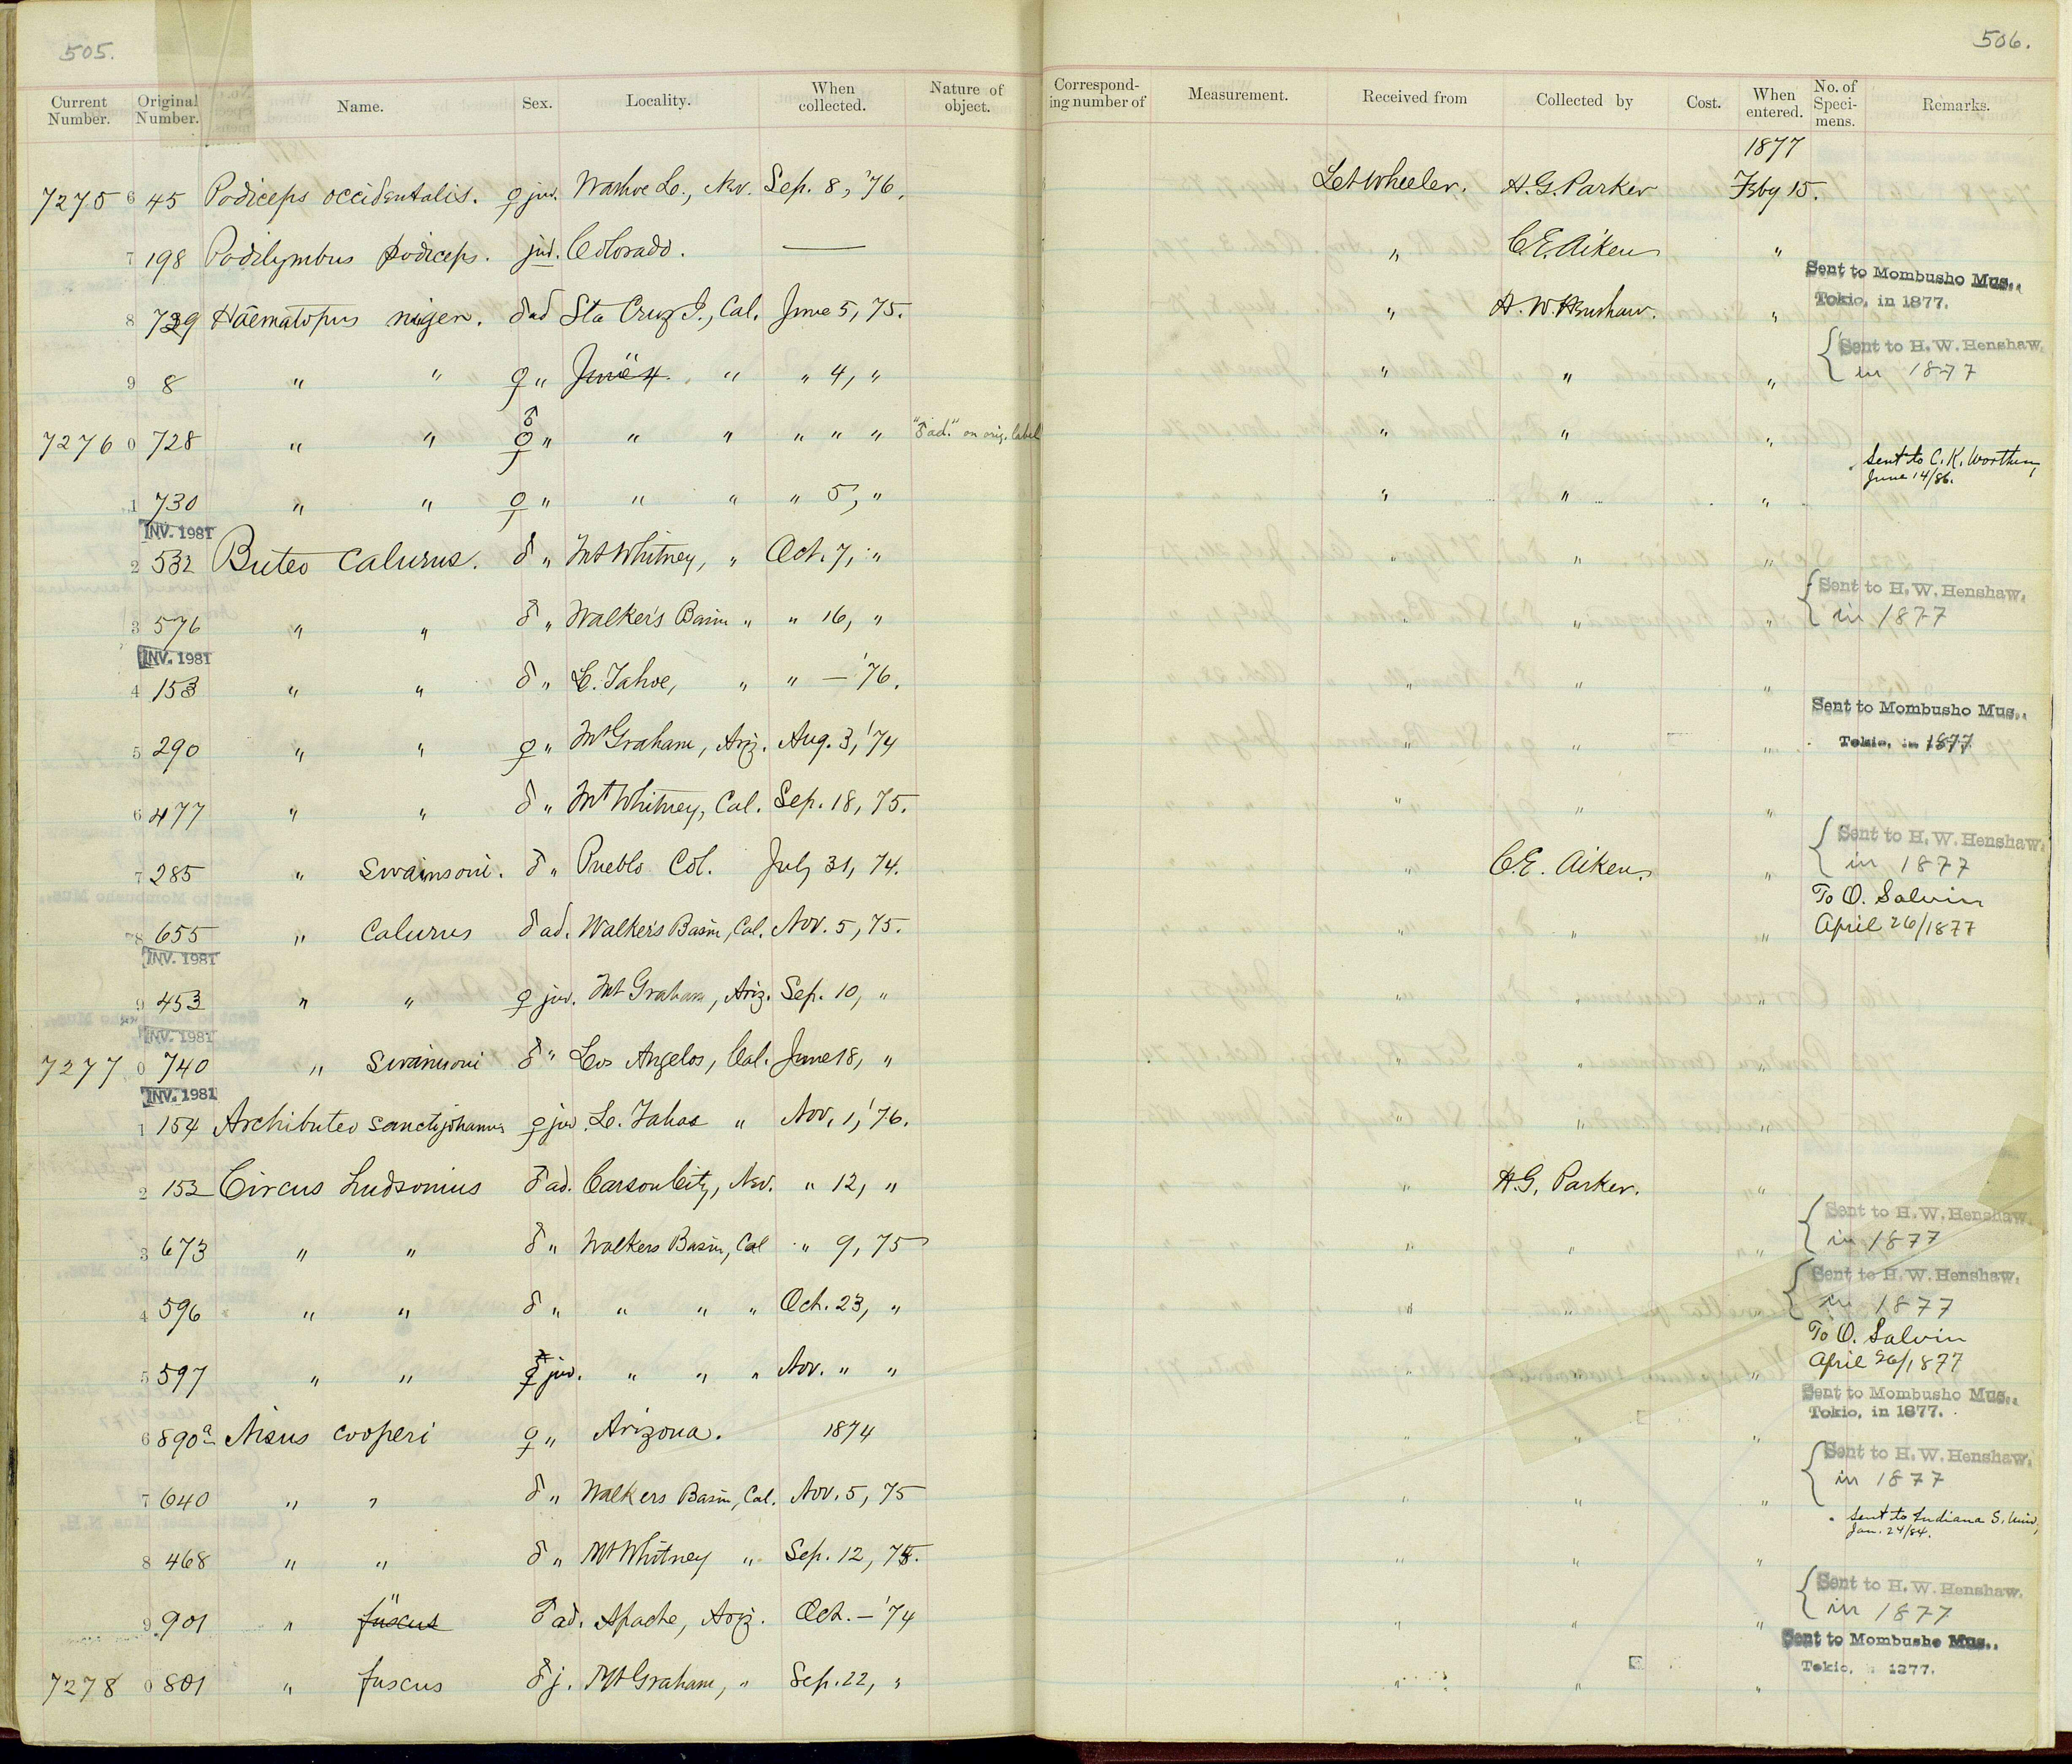 505.
506.
Current Number. Original Number. Name. Sex. Locality. When collected. Nature of object. Corresponding number of Measurement. Received from Collected by Cost. When entered. No. of Specimens. Remarks.
1877
7275 6 45 Podiceps occidentalis. ♀ juv. Washoe L., Nev. Sep. 8, '76. Lt Wheeler. H.G. Parker Feby 15.
7 198 Podilymbus podiceps. juv. Colorado. — " C.E. Aiken "
Sent to Mombusho Mus., Tokio, in 1877.
8 729 Haematopus niger. ♂ ad Sta Cruz I., Cal. June 5, 75. " H. W. Henshaw. "
{ Sent to H. W. Henshaw. in 1877
9 8 " " ♀ " June 4. " " " 4, " " " "
7276 0 728 " " ♂ ♀ " " " " " " "♂ ad." on orig. label " " "
Sent to C. K. Worthen, June 14/86.
1 730 " " ♀ " " " " 5, " " " "
INV. 1981
2 532 Buteo calurus. ♂ " Mt Whitney, " Oct. 7, " " " "
{ Sent to H. W. Henshaw. in 1877
3 576 " " ♂ " Walker's Basin " " 16, " " " "
INV. 1981
4 153 " " ♂ " L. Tahoe, " " — '76. " " "
Sent to Mombusho Mus., Tokio, in 1877
5 290 " " ♀ " Mt Graham, Ariz. Aug. 3, '74 " " "
6 477 " " ♂ " Mt Whitney, Cal. Sep. 18, 75. " " "
{ Sent to H. W. Henshaw. in 1877
7 285 " swainsoni. ♂ " Pueblo Col. July 31, 74. " C.E. Aiken. "
To O. Salvin April 26/1877
8 655 " calurus ♂ ad. Walker's Basin, Cal. Nov. 5, 75. " " "
INV. 1981
9 453 " " ♀ juv. Mt Graham, Ariz. Sep. 10, " "
INV. 1981
7277 0 740 " swainsoni ♂ " Los Angelos, Cal. June 18, " "
INV. 1981
1 154 Archibuteo sanctijohannis ♀ juv. L. Tahoe " Nov. 1, '76. "
2 152 Circus hudsonius ♂ ad. Carson City, Nev. " 12, " " H.G. Parker. "
{ Sent to H. W. Henshaw. in 1877
3 673 " " ♂ " Walkers Basin, Cal " 9, 75 " " "
{ Sent to H. W. Henshaw. in 1877
4 596 " " ♂ " " " " Oct. 23, " " "
To O. Salvin April 26/1877
5 597 " " ♀ juv. " " " Nov. " " " "
Sent to Mombusho Mus., Tokio, in 1877.
6 890a Nisus cooperi ♀ " Arizona. 1874 " " "
{ Sent to H. W. Henshaw. in 1877
7 640 " " ♂ " Walkers Basin, Cal. Nov. 5, 75 " " "
Sent to Indiana S. Univ, Jan. 24/84.
8 468 " " ♂ " Mt Whitney " Sep. 12, 75. " " "
{ Sent to H. W. Henshaw. in 1877
9 901 " fuscus " ♂ ad. Apache, Ariz. Oct. — '74 " " "
Sent to Mombusho Mus., Tokio, in 1877.
7278 0 801 " fuscus ♂ j. Mt Graham, " Sep. 22, " " " "